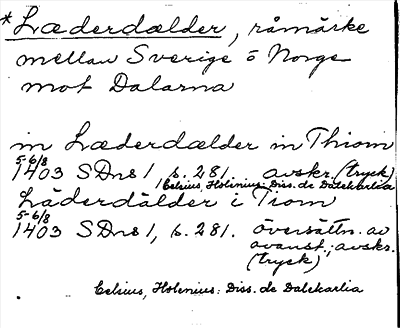 *Læderdælder, råmärke
mellan Sverige o Norge
mot Dalarna
in Læderdælder in Thiom
5-6/8
1403 SDns 1, s. 281. avskr. (tryck)
Celsius, Holenius: Diss. de Dalekarlia
Läderdälder i Tiom
5-6/8
1403 SDns 1, s. 281. översättn. av
ovanst.; avskr.
(tryck)
Celsius, Holenius: Diss. de Dalekarlia